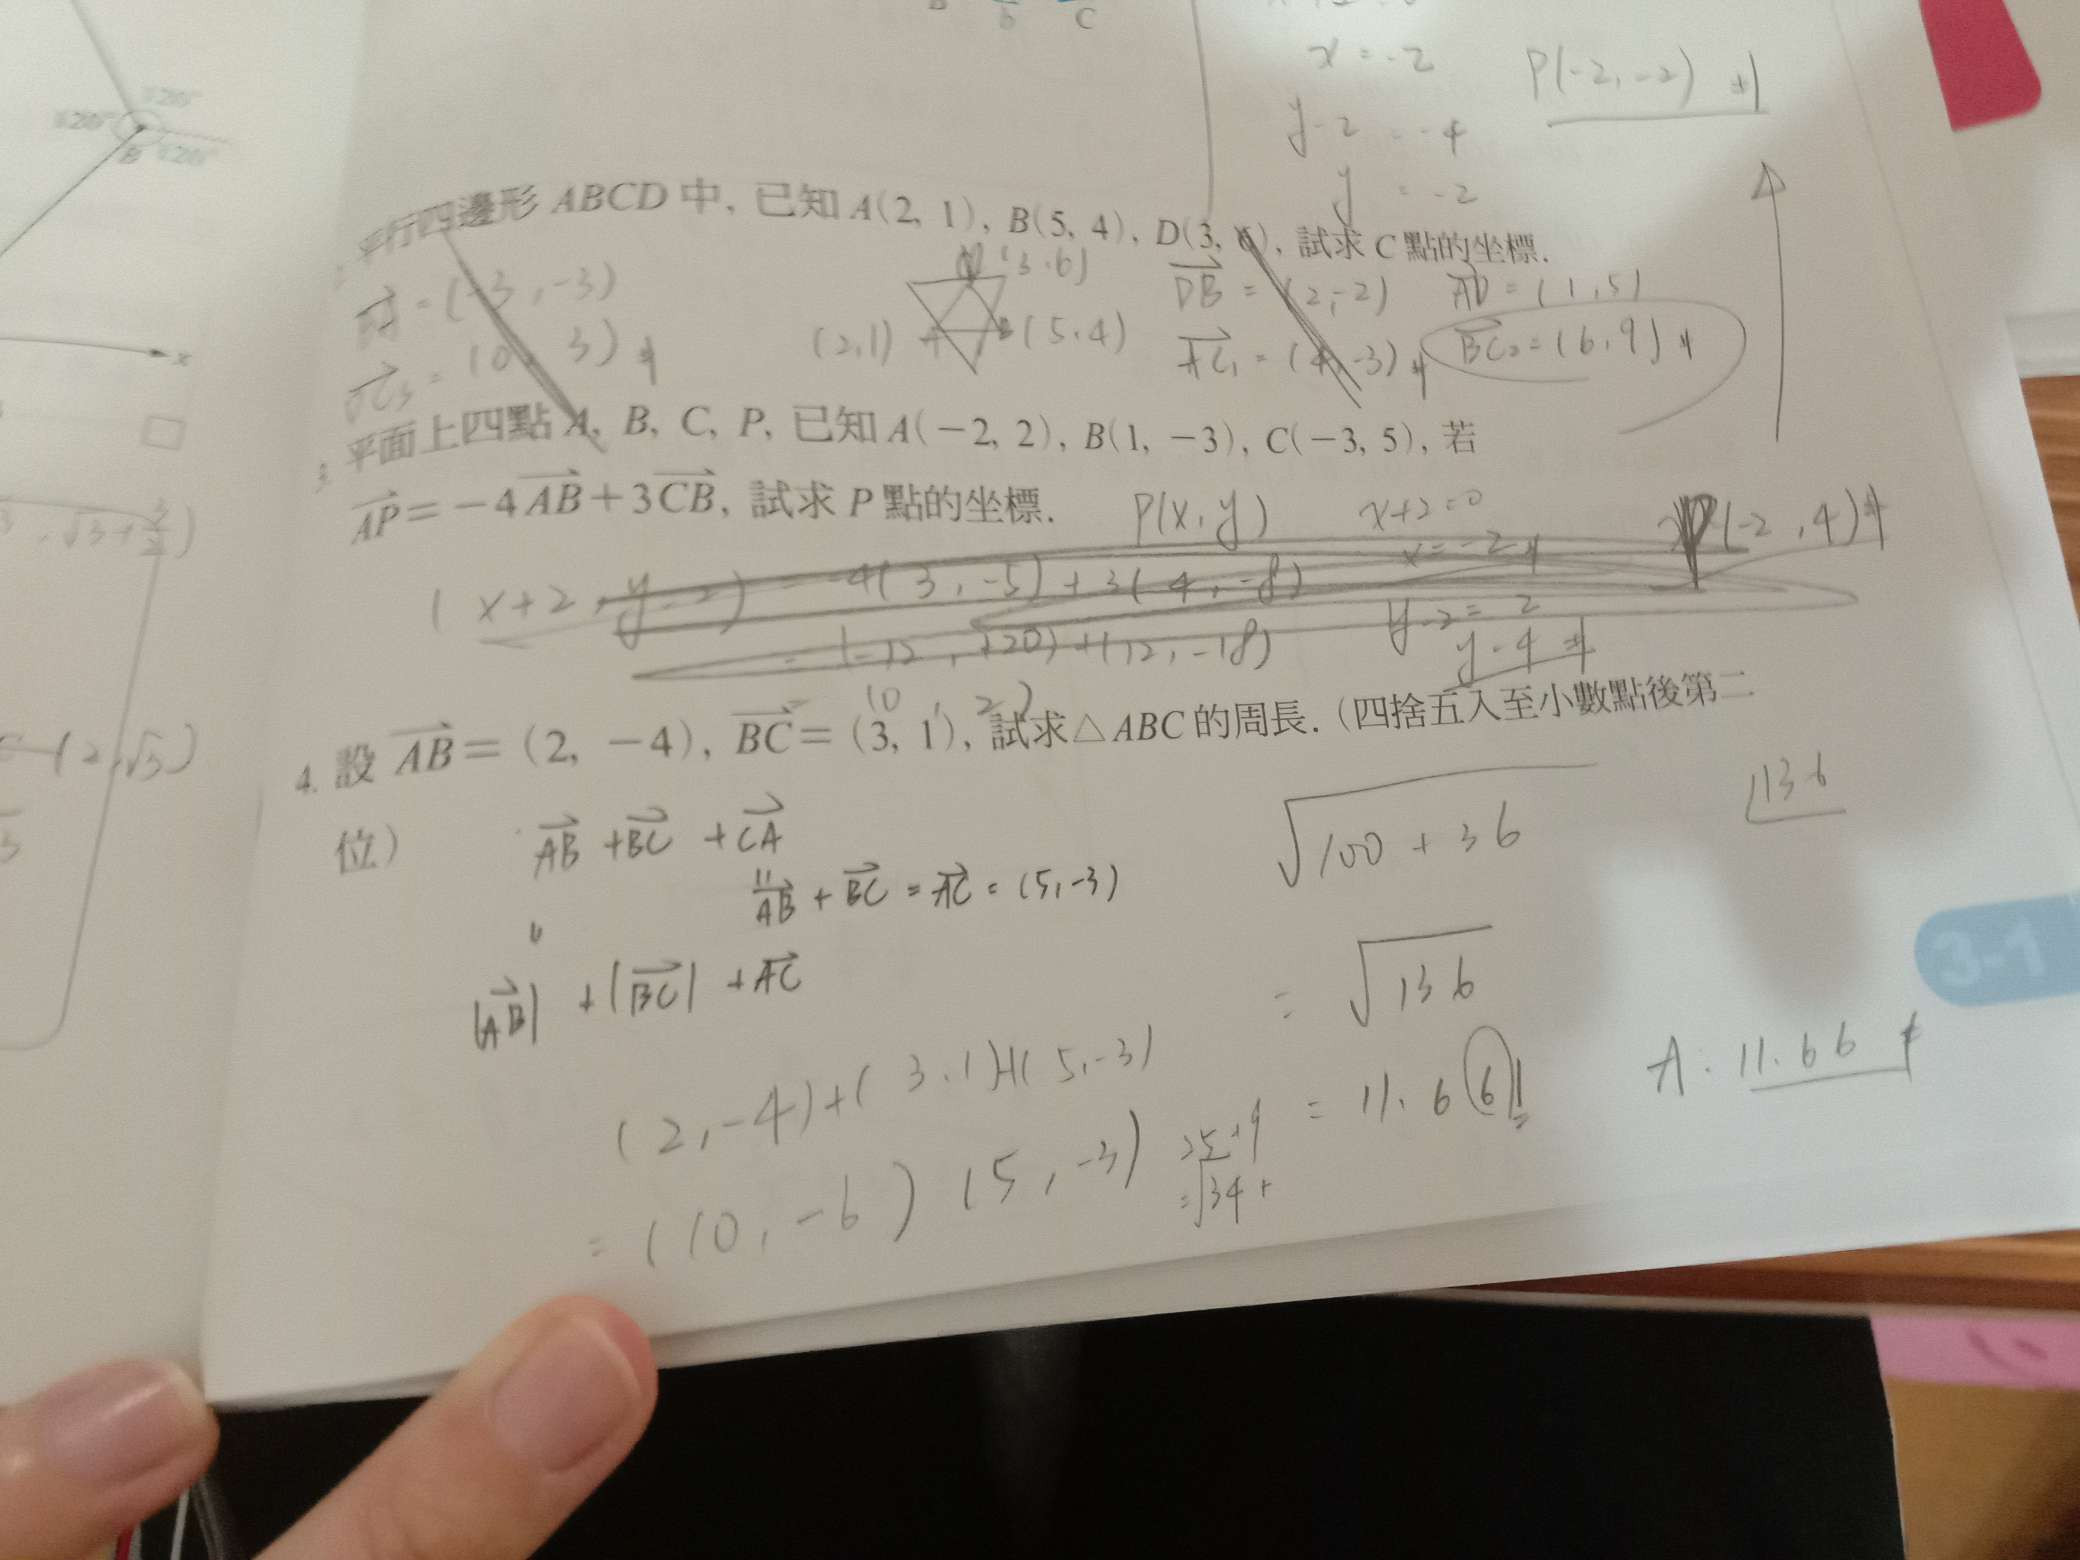 x = -2
P(-2, -2) #
y-2 = -4
y = -2
平行四邊形 ABCD 中, 已知 A(2, 1), B(5, 4), D(3, 6), 試求 C 點的坐標.
= (-3, -3)
(3.6)
DB = (2, -2)
AD = (1, 5)
(0, 3) #
(2,1) A
B (5.4)
AC₁ = (4, -3) #
BC₂ = (6, 9) #
3. 平面上四點 A, B, C, P, 已知 A(-2, 2), B(1, -3), C(-3, 5), 若
AP = -4AB + 3CB, 試求 P 點的坐標.
P(x, y)
x+2=0
x = -2 #
P(-2, 4) #
(x+2, y-2) = -4(3, -5) + 3(4, -8)
y-2 = 2
= (-12, +20) + (12, -18)
y = 4 #
= (0, 2)
4. 設 AB = (2, -4), BC = (3, 1), 試求 △ABC 的周長. (四捨五入至小數點後第二
位)
AB + BC + CA
AB + BC = AC = (5, -3)
|AB| + |BC| + AC
√100 + 36
136
= √136
(2, -4) + (3.1) + (5, -3)
= 11.66
A: 11.66 #
= (10, -6)
(5, -3)
25+9
= √34 +
3-1
x
120°
120°
120°
B
b
C